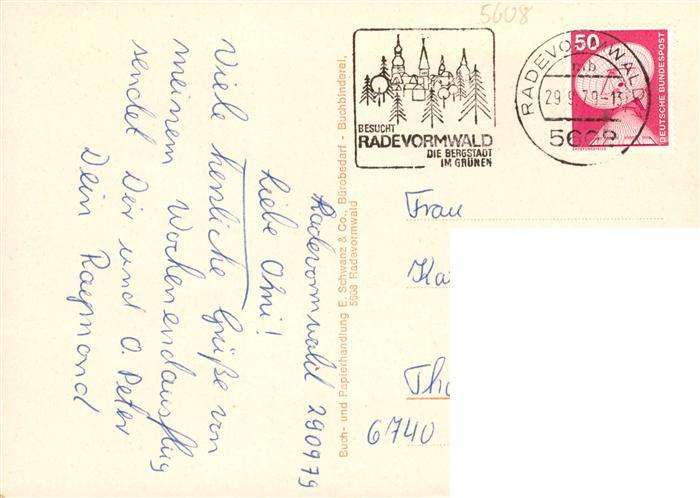 5608
BESUCHT
RADEVORMWALD
DIE BERGSTADT
IM GRÜNEN
RADEVORMWALD
29.9.79-13
5608
50
DEUTSCHE BUNDESPOST
Radevormwald 290979
Liebe Omi!
Viele herzliche Grüße von
meinem Wochenendausflug
sendet Dir und O. Peter
Dein Raymond
Buch- und Papierhandlung E. Schwanz & Co., Bürobedarf - Buchbinderei,
5608 Radevormwald
Frau
Ka
Th
6740